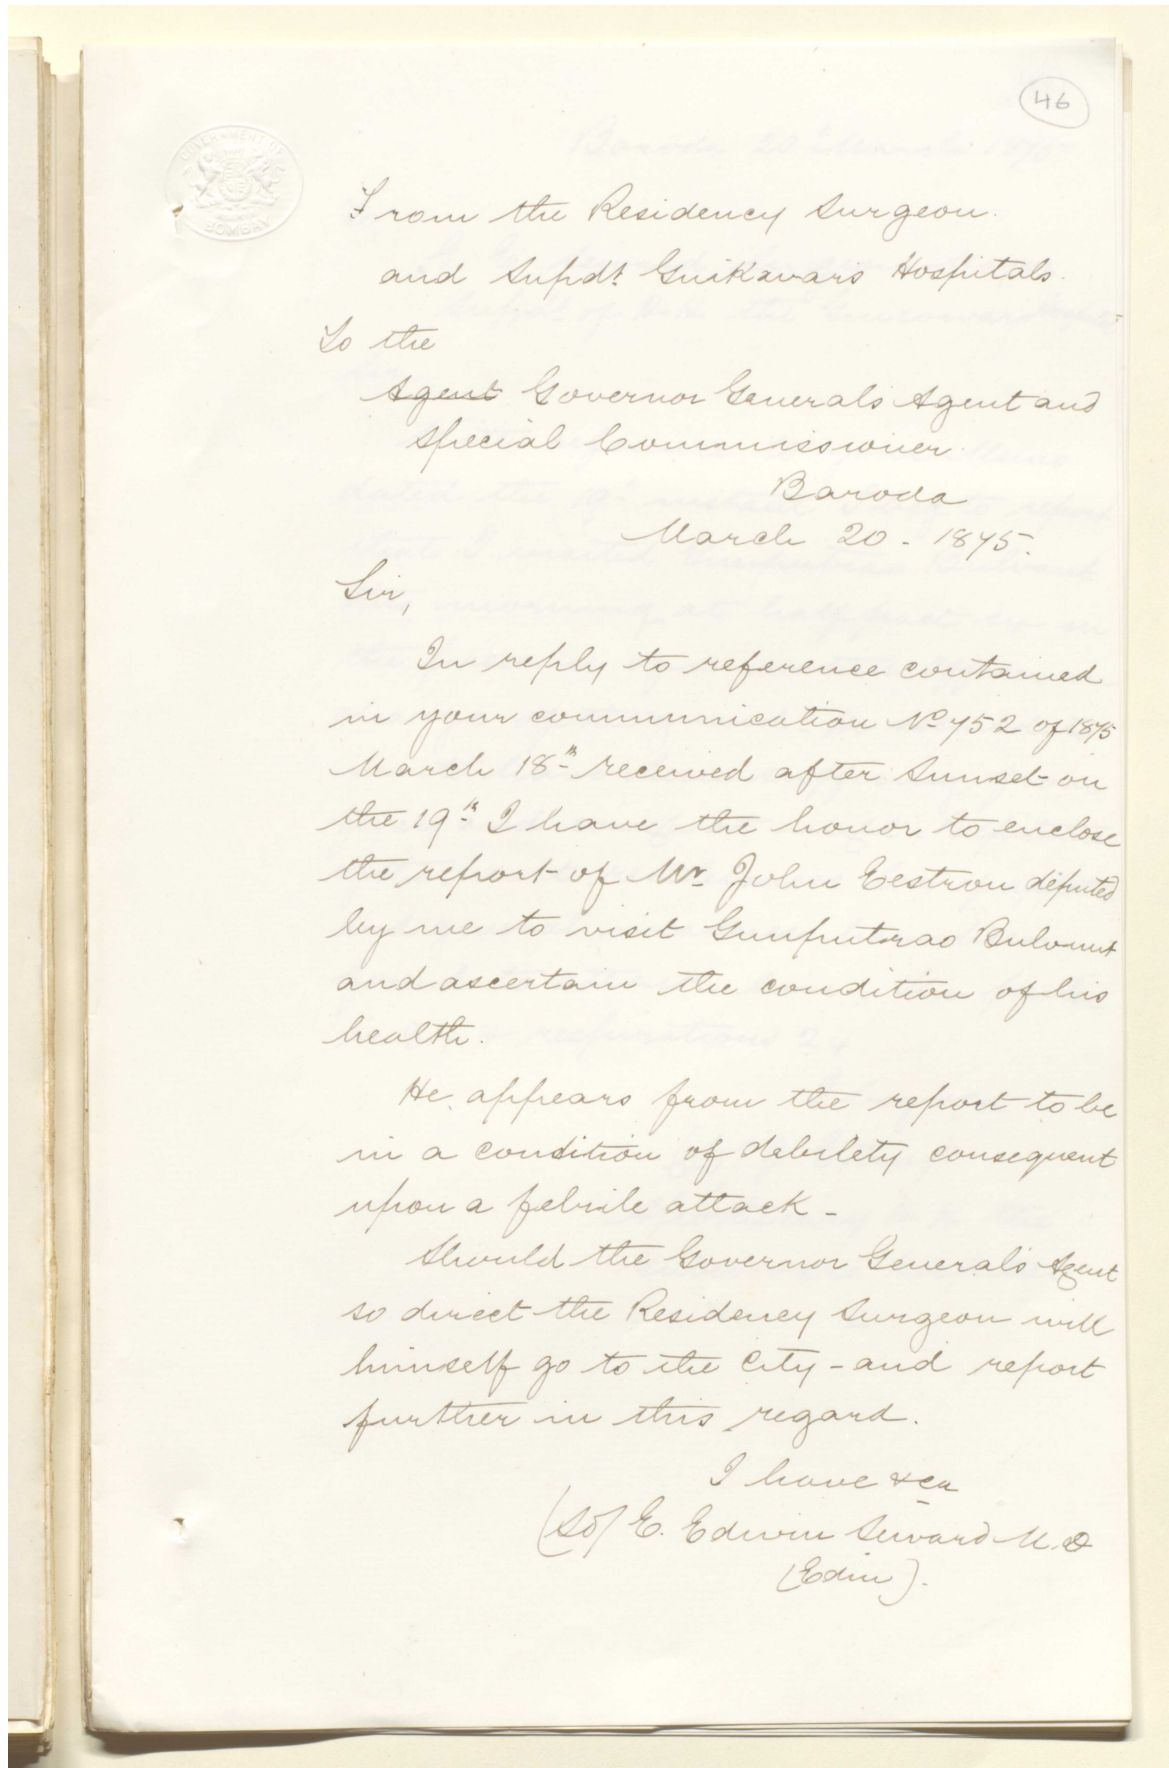 46
GOVERNMENT OF
BOMBAY
From the Residency Surgeon.
and Supdt. Guikawar's Hospitals.
To the
Agent Governor Generals Agent and
Special Commissioner
Baroda
March 20 - 1875.
Sir,
In reply to reference contained
in your communication No 752 of 1875
March 18th received after Sunset on
the 19th I have the honor to enclose
the report of Mr. John Cestron deputed
by me to visit Gunputrao Bulvunt
and ascertain the condition of his
health.
He appears from the report to be
in a condition of debilety consequent
upon a febrile attack -
Should the Governor General's Agent
so direct the Residency Surgeon will
himself go to the City - and report
further in this regard.
I have &ca
(Sd/ E. Edwin Seward M.D
(Edin).